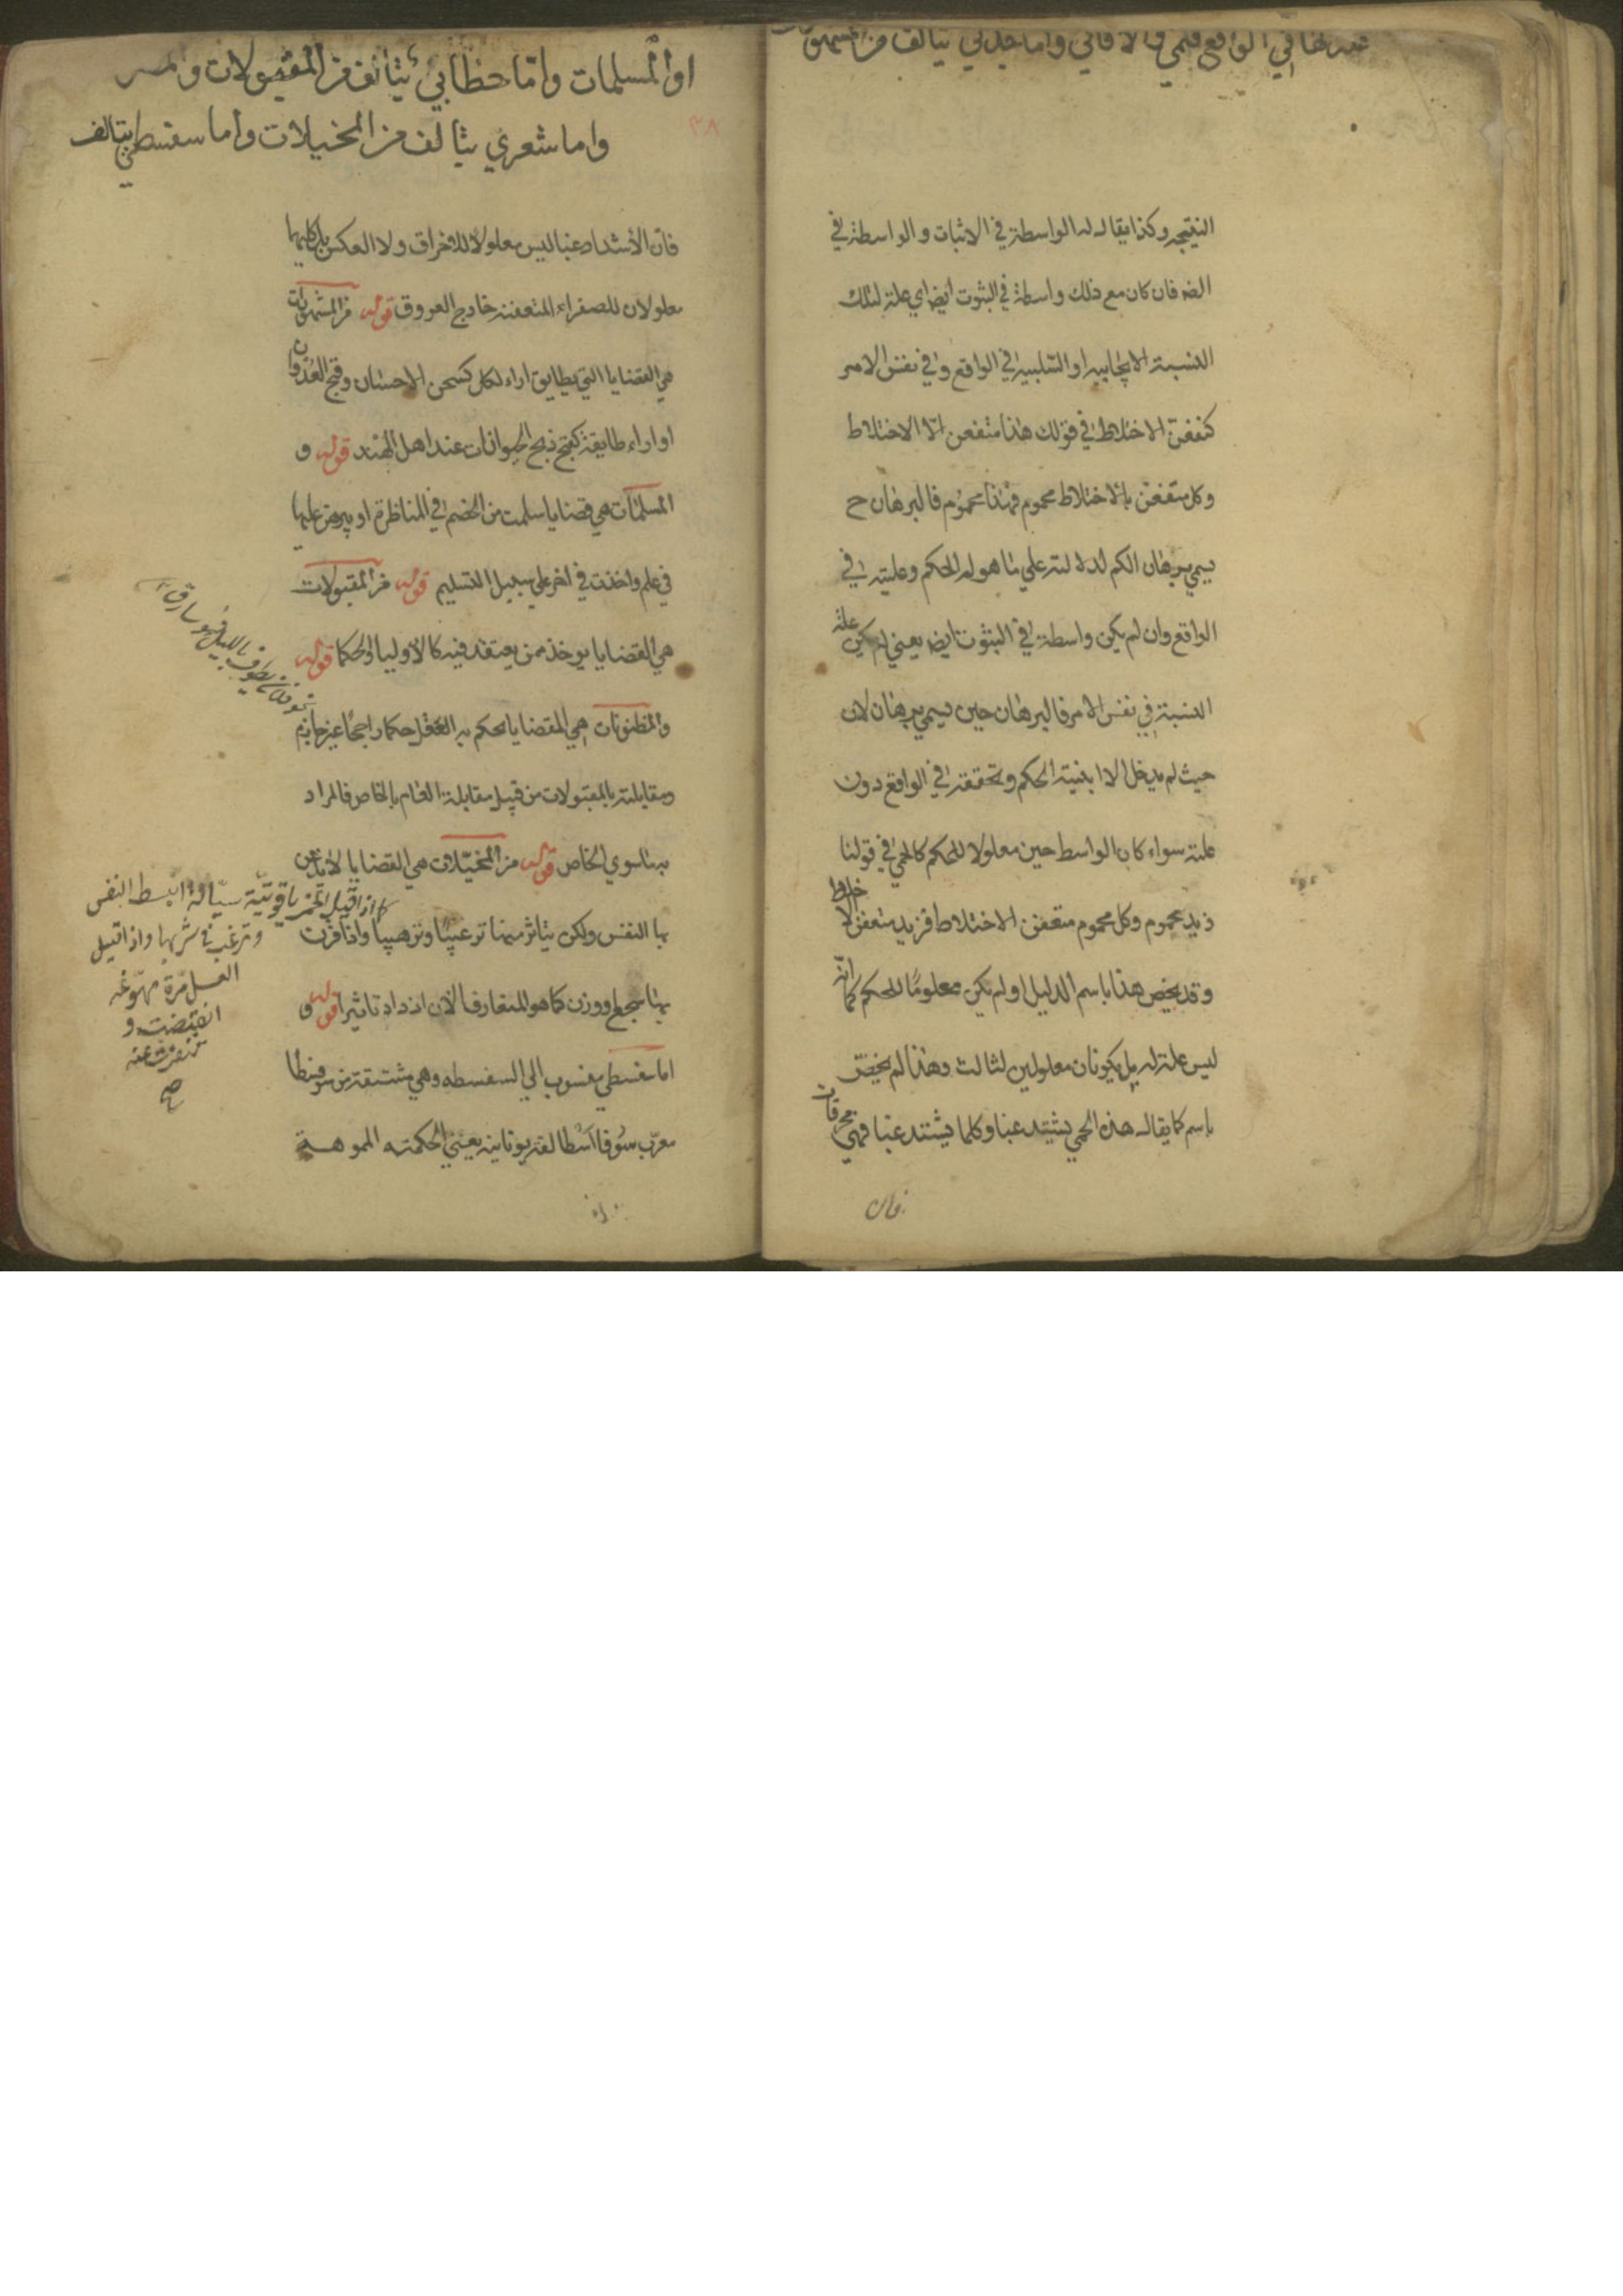 في الواقع فلمي والا فاني واما جدلي يتالف من المشهورات
النتيجه وكذا يقال له الواسطة في الاثبات والواسطة في
التص فان كان مع ذلك واسطة في الثبوت ايضا اي علة لتلك
النسبة الايجابيه او السلبيه في الواقع وفي نفس الامر
كتعفن الاختلاط في قولك هذا متعفن الاختلاط
وكل متعفن بالاختلاط محموم فهذا محموم فالبرهان ح
يسمي برهان الكم لدلالته علي ما هو لم الحكم وعليته في
الواقع وان لم يكن واسطة في الثبوت ايضا يعني لم يكن علة
النسبة في نفس الامر فالبرهان حين يسمي برهان لان
حيث لم يدخل الا انية الحكم وتحققه في الواقع دون
علته سواء كان الواسط حين معلولا للحكم كالحمي في قولنا
زيد محموم وكل محموم متعفن الاختلاط فزيد متعفن الاخلاط
وقد يخص هذا باسم الدليل او لم يكن معلوما للحكم كما انه
ليس علة له بل يكونان معلولين لثالث وهذا لم يختص
باسم كما يقال هذه الحمي يشتد غبا وكلما يشتد غبا فهي محرقات
فان
٣٨
او المسلمات واما خطابي يتالف من المقبولات والمظ
واما شعري يتالف من المخيلات واما سفسطي يتالف
فان الاشتداد غبا ليس معلولا للاخراق ولا العكس بل كليهما
معلولان للصفراء المتعفنه خارج العروق قوله من المشهورات
هي القضايا التي يطابق اراء لكل كحسن الاحسان وقبح العدوان
او اراء طايفة كقبح ذبح الحيوانات عند اهل الهند قوله و
المسلمات هي قضايا سلمت من الخصم في المناظرة او برهن عليها
في علم واخذت في اخر علي سبيل التسليم قوله من المقبولات
هي القضايا يوخذ ممن يعتقد فيه كالاوليا والحكما قوله
والمظنونات هي القضايا يحكم بها العقل حكما راجحا غير جازم
ومقابلته بالمقبولات من قبيل مقابلة العام بالخاص فالمراد
به ما سوي الخاص قوله من المخيلات هي القضايا لا يذعن
بها النفس ولكن يتاثر منها ترغيبا وترهيبا واذا قرن
بها سجع او وزن كما هو المتعارف الان ازداد تاثيرا قوله و
اما سفسطي منسوب الي السفسطه وهي مشتقة من سوفسطا
معرب سوفا اسطا لغة يونانية يعني الحكمته المموهة
يطوف بالليل فهو سارق
كما اذا قيل الخمر ياقوتية سيالة انبسط النفس
وترغب في شربها واذا قيل
العسل مرة مهوعة
انقبضت و
تنفرت عنه